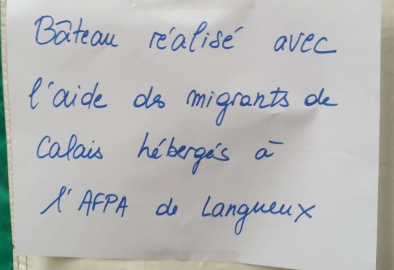 Bâteau réalisé avec
l'aide des migrants de
Calais hébergés à
l'AFPA de Langueux